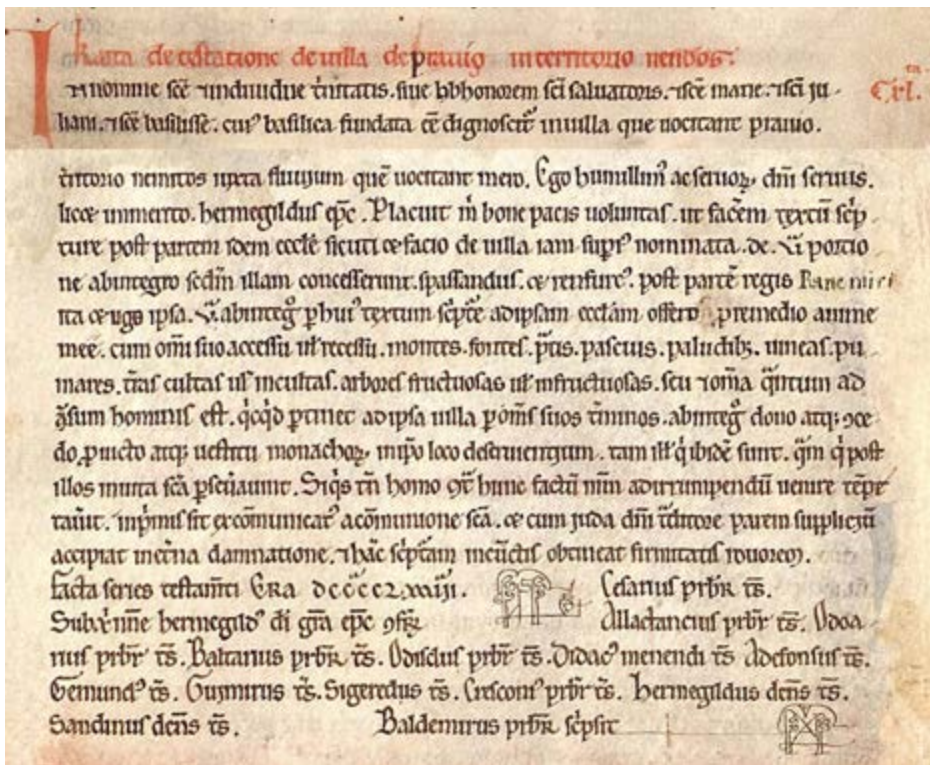 Karta de testatione de uilla de prauijo in territorio nendos.
In nomine sc̄e ⁊ indiuidue t̄nitatis. siue hb̄honorem sc̄i saluatoris. ⁊sc̄e marie. ⁊sc̄i ju-
Cxl.
liani. ⁊sc̄e basilisse. cuiꝰ basilica fundata ēē dignoscit᷑ inuilla que uocitant prauio.
t̄ritorio nemitos iuxta fluuium quē uocitant mero. Ego humillimꝰ ac seruoꝝ dn̄i seruus.
licet inmerito. hermegildus ep̄c. Placuit m̄ bone pacis uoluntas. ut facēm textū sc̄p
ture post partem idem eccl̄e sicuti et facio de uilla iam suprꝰ nominata. de. portio
ne abintegro secd̄m illam concesserunt. spassandus. et rensurꝰ. post partē regis Ranemiri
ita et ego ipsa. abinteg̊ p̱huiꝰ textum sc̄pte adipsam eccl̄am offero p̱remedio anime
mee. cum om̄i suo accessu uł recessu. montes. fontes. p̄tis. pascuis. paludibꝫ. uineas. pu
mares. t̄ras cultas uł incultas. arbores fructuosas uł infructuosas. seu ⁊om̄ia q̄ntum ad
hominis est. q̇cq̇d p̱tinet adipsa uilla p̱om̄s suos t̄minos. abinteg̊ dono atqꝫ ꝯce
do p̱uicto atqꝫ uestitu monachoꝝ inip̄o loco deseruientium. tam ill̄ q̇ibidē sunt. q̄m q̇ post
illos inuita sc̄a p̱seuauint. Siq̇s tn̄ homo ꝯt̄ hunc factū nr̄m adirrumpendū uenire tēpt
tauit. inp̄mis sit excōmunicatꝰ acōmunione sc̄a. et cum juda dn̄i t̄ditore parem suppliciū
accipiat inet̄na damnatione. ⁊hāc sc̄ptam incūctis obtineat firmitatis rouorem.
facta series testam̄ti ERA
Cesarius pr̄br̄ ts̄.
Sub hermegildꝰ d̄i gr̄a ep̄c ꝯfr̄
Allactancius pr̄br̄ ts̄. Odoa
rius pr̄br̄ ts̄. Baltarius pr̄br̄ ts̄. Odisclus pr̄br̄ ts̄. Didacꝰ menendi ts̄ Adefonsus ts̄.
Gemundꝰ ts̄. Guymirus ts̄. Sigeredus ts̄. Cresconiꝰ pr̄br̄ ts̄. Hermegildus dc̄ns ts̄.
Sandinus dc̄ns ts̄.
Baldemirus pr̄br̄ sc̄psit